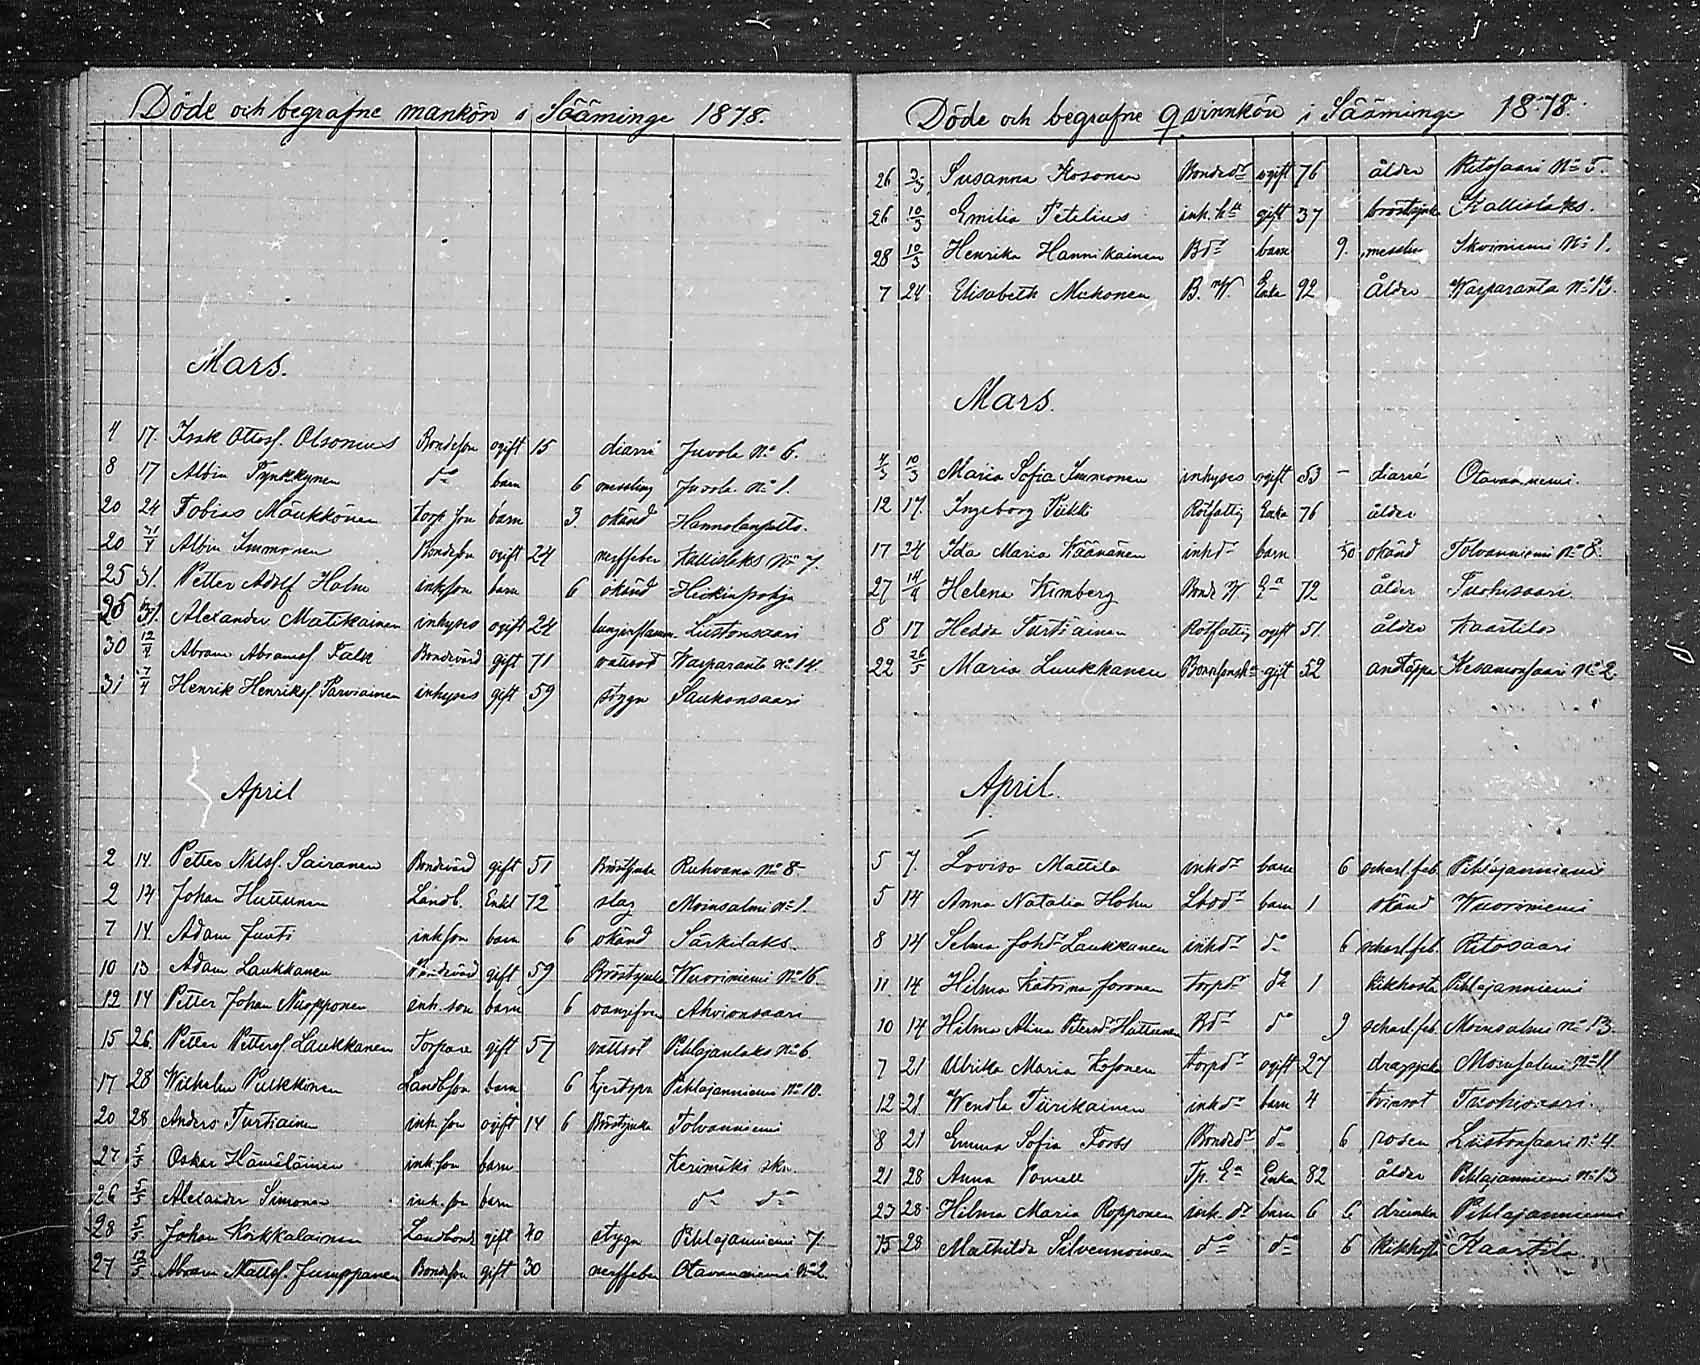 Döde och begrafne mankön i Sääminge 1878.
Mars.
4 17. Isak Ottosf. Olsonius Bondeson ogift 15 diarré Juvola No 6.
8 17 Albin Tynkkynen do barn 6 messling Juvola No 1.
20 24 Tobias Maukkonen torp son barn 3. okänd
20 21/4 Albin Immonen Bondeson ogift 24 nerffeber Kallislaks No 7
25 31. Petter Adolf Holm inhson barn 6 okänd Heikinpohja
25 31. Alexander Matikainen inhyses ogift 24 Liistonsaari
30 12/4 Abram Abramsf. Falk Bondevärd gift 71 vattsot Warparanta No 14.
31 7/4 Henrik Henriksf. Parviainen inhyses gift 59 stygn Saukonsaari
April
2 14. Petter Nilsf. Sairanen Bondevärd gift 51 Bröstsjuka Ruhvana No 8
2 14 Johan Huttunen Landb. Enkl 72 slag Moinsalmi No 1.
7 14 Adam Juuti inhson barn 6 okänd Särkilaks
10 13 Adam Laukkanen Bondevärd gift 59 Bröstsjuka Wuoriniemi No 16.
12 14 Petter Johan Nuopponen inh. son barn 6 Ahvionsaari
15 26. Petter Pettersf. Laukkanen Torpare gift 57 vattsot Pihlajanlaks No 6.
17 28 Wilhelm Pulkkinen Landbson barn 6 Pihlajanniemi No 10.
20 28 Anders Turtiainen inh. son ogift 14 6 Bröstsjuka Tolvanniemi
27 5/5 Oskar Hämäläinen inh. son barn Kerimäki skn.
26 5/5 Alexander Simonen inh. son barn do do
28 5/5 Johan Koikkalainen Landbond gift 40 stygn Pihlajaniemi 7.
27 12/5 Abram Mattsf. Jumppanen Bondeson gift 30 nerffeber Otavaniemi No 2.
Döde och begrafne qvinnkön i Sääminge 1878.
26 3/3 Susanna Kosonen Bondedr ogift 76 ålder Ritosaari No 5.
26 10/3 Emilia Petelius inh. ha gift 37 bröstsjuka Kallislaks.
28 10/3 Henrika Hannikainen Bdr barn 9. messlin No 1.
7 24 Elisabeth Muhonen B. W. Enka 92 Ålder Warparanta No 13.
Mars.
4/3 10/3 Maria Sofia Immonen inhyses ogift 53 – diarré Otavaniemi.
12 17. Ingeborg Pukki Rotfattig Enka 76 ålder
17 24 Ida Maria Käänänen inhdr barn 1/30 okänd Tolvanniemi No 8.
27 14/4 Helena Kimberg Bond W Ea 72 ålder Tuohisaari
8 17 Hedda Turtiainen Rotfattig ogift 51. ålder Kaartila
22 26/5 Maria Luukkanen gift 52 andtäppa Kesamonsaari No 2.
April.
5 7. Lovisa Mattila inhdr barn 6 scharl.feb. Pihlajanniemi
5 14 Anna Natalia Holm Lbdr barn 1 okänd Wuoriniemi
8 14 Selma Johdr Laukkanen inhdr do 6 scharl.feb. Ritosaari
11. 14 Hilma Katrina Joronen torpdr do 1 kikhosta Pihlajanniemi
10 14 Hilma Alina Petersdr Huttunen Bdr do 9 scharl.feb. Moinsalmi No 13.
7 21 Ulrika Maria Kosonen torpdr ogift 27 dragsjuka Moinsalmi No 11
12 21 Wendla Tiirikainen inhdr barn 4 tvinsot Tuohisaari.
8 21 Emma Sofia Forbs Bondedr do 6 rosen Liistonsaari No 4
21 28 Anna Tp. Ea Enka 82 ålder Pihlajanniemi No 13
23 28 Hilma Maria Ropponen inh. dr barn 6 6 drunkn Pihlajanniemi
15 28 Mathilda Silvennoinen do do 6 kikhosta Kaartila